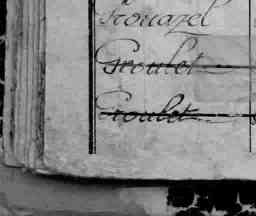 Grouazel
Groulet
Groulet